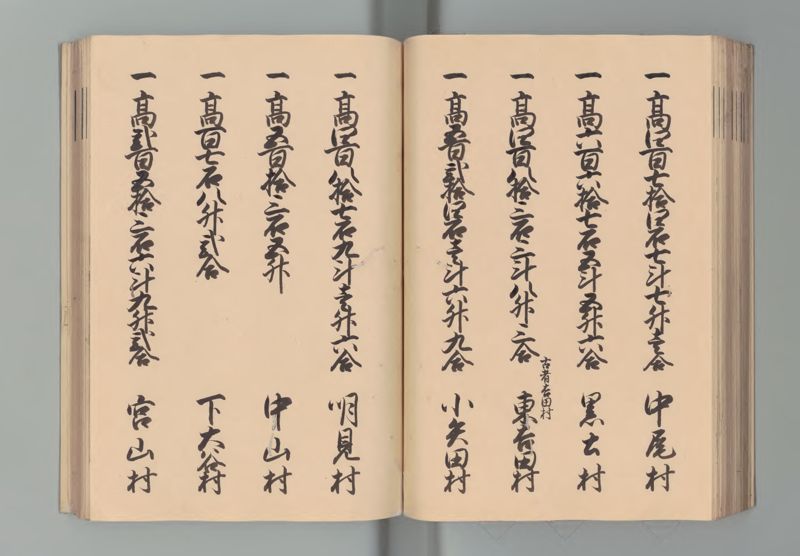 一 高四百七拾四石七斗七升壱合 中尾村
一 高六百六拾七石五斗五升六合 黒土村
一 高四百八拾三石三斗八升三合 古者吉田村 東吉田村
一 高五百弐拾四石壱斗六升九合 小矢田村
一 高四百八拾七石九斗壱升六合 明見村
一 高五百拾三石五升 中山村
一 高百七石八升弐合 下大谷村
一 高弐百五拾三石六斗九升弐合 宮山村